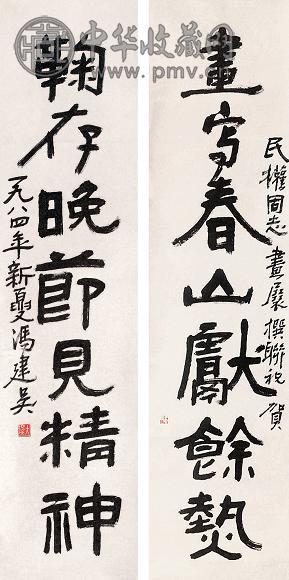 中华收藏网
www.pmv.cn
畫写春山獻餘熱
民權同志畫展撰聯祝賀
鞠存晚節見精神
一九八四年新夏馮建吳